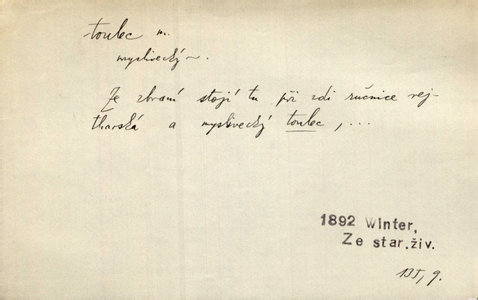 toulec m.
myslivecký ~.
Ze zbraní stojí tu při zdi ručnice rej-
tharská a myslivecký toulec, ...
1892 Winter,
Ze star.živ.
9.